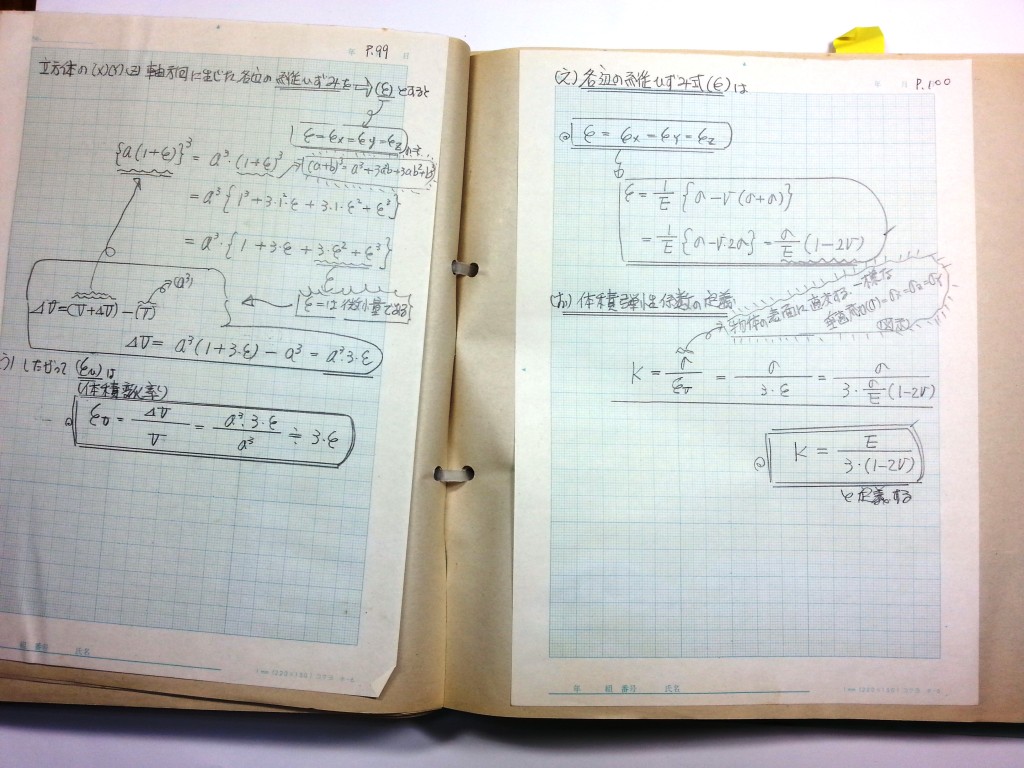 年 P.99 日
立方体の(x)(Y)(Z)軸方向に生じた各辺の弾性ひずみを⇒(ε)とすると
ε=εx=εy=εz
{a(1+ε)}³ = a³・(1+ε)³
(a+b)³=a³+3a²b+3ab²+b³
= a³{1³+3・1²・ε+3・1・ε²+ε³}
= a³・{1+3・ε+3・ε²+ε³}
(a³)
ε=は微小量である
ΔV=(V+ΔV)-(V)
ΔV= a³(1+3・ε)-a³ = a³・3・ε
う) したがって (εv)は
(体積変化率)
εv = ΔV/V = a³・3・ε/a³ ≒ 3・ε
組 番号 氏名
年 月 P.100
(え) 各辺の弾性ひずみ式(ε)は
ε=εx=εy=εz
ε = 1/E {σ-ν(σ+σ)}
= 1/E {σ-ν・2σ} = σ/E (1-2ν)
(お) 体積弾性係数の定義
物体の表面に直交する一様な
垂直応力(σ)=σx=σz=σy
K = σ/εv = σ/3・ε = σ/3・σ/E(1-2ν)
K = E/3・(1-2ν)
と定義する
年 組 番号 氏名